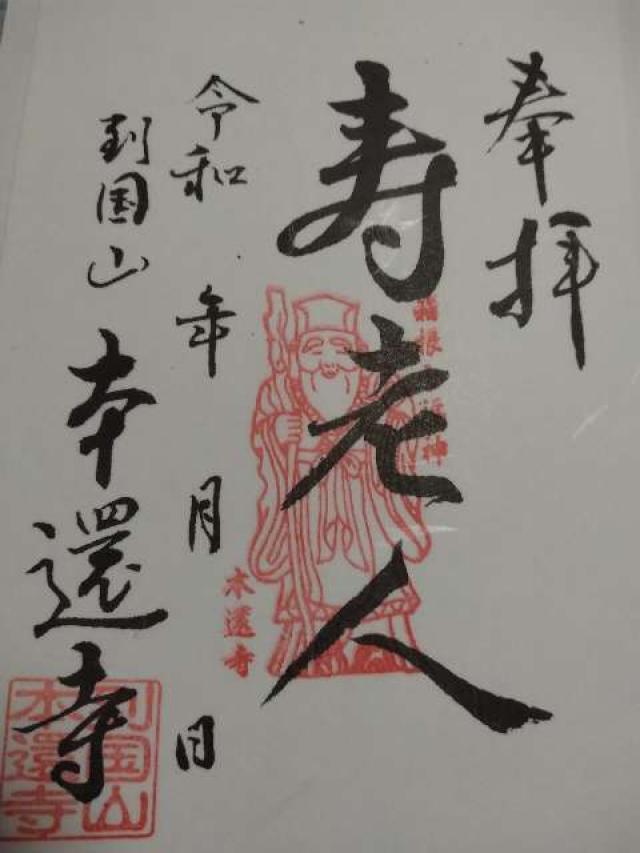 奉拝
寿老人
箱根七福神
本還寺
令和 年 月 日
到国山 本還寺
到国山
本還寺